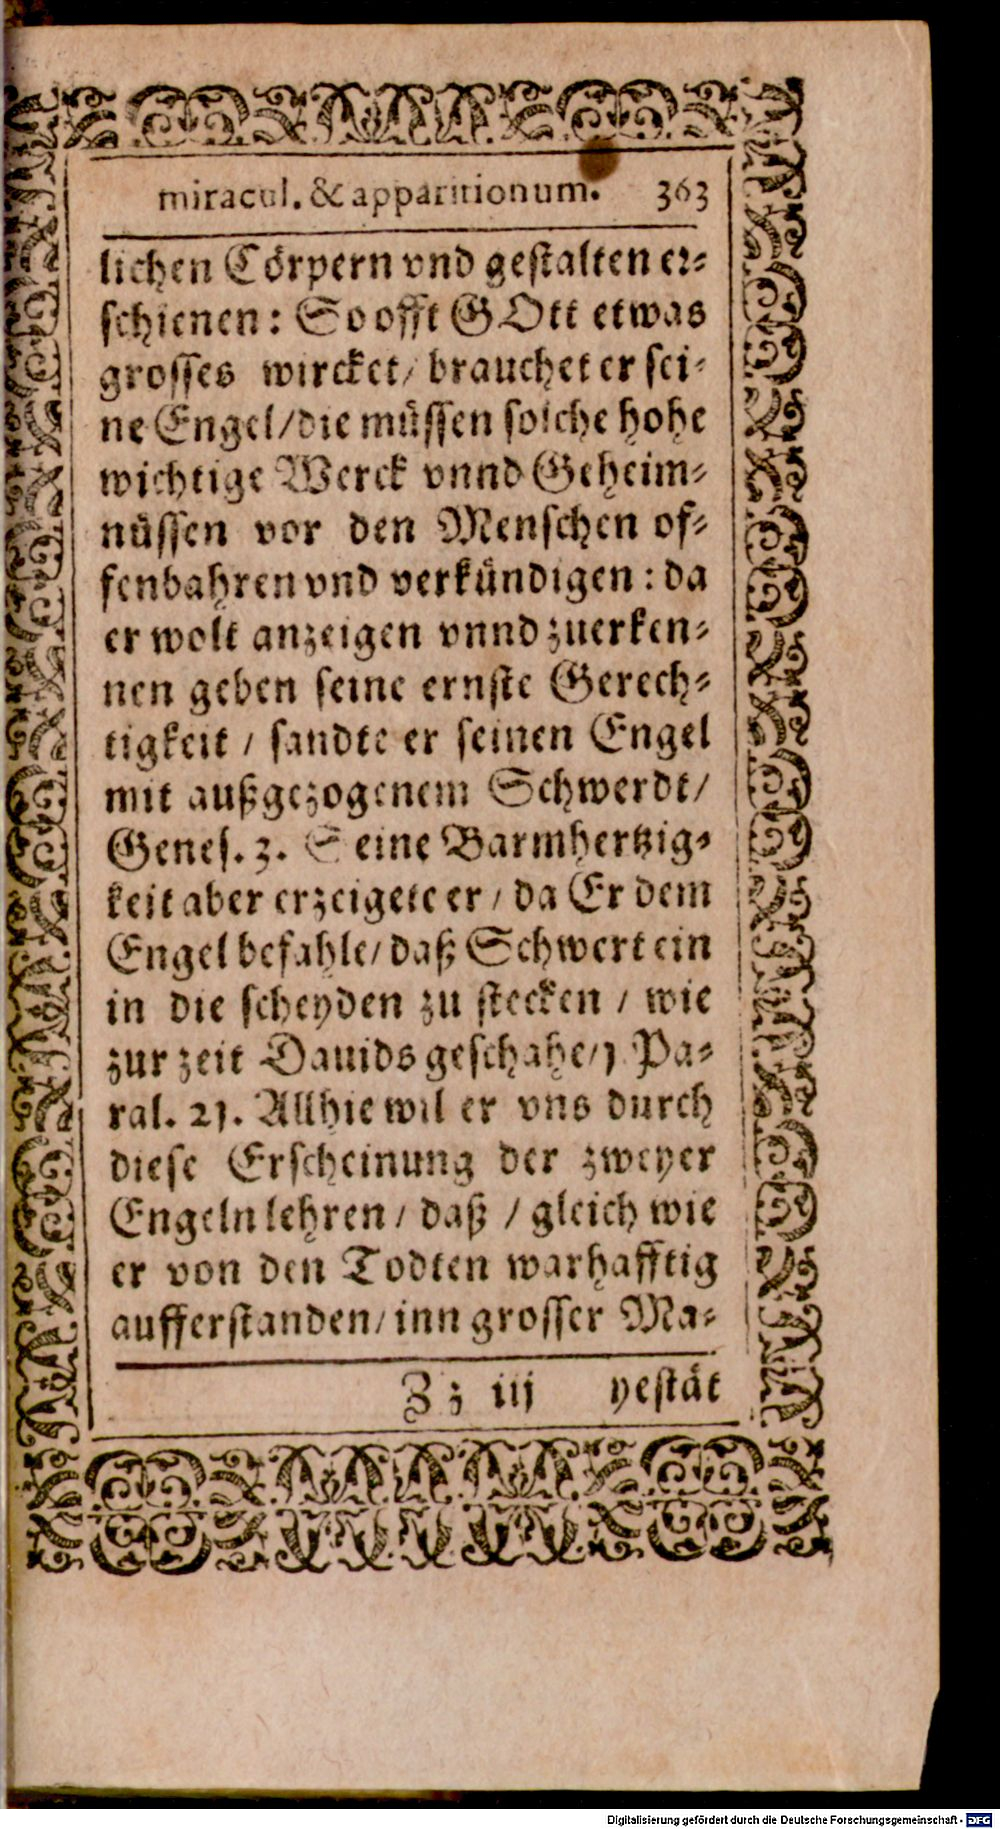 miracul. & apparitionum. 363
lichen Cörpern vnd gestalten er-
schienen: So offt GOtt etwas
grosses wircket/ brauchet er sei-
ne Engel/die müssen solche hohe
wichtige Werck vnnd Geheim-
nüssen vor den Menschen of-
fenbahren vnd verkündigen: da
er wolt anzeigen vnnd zuerken-
nen geben seine ernste Gerech-
tigkeit / sandte er seinen Engel
mit außgezogenem Schwerdt/
Genes. 3. Seine Barmhertzig-
keit aber erzeigete er / da Er dem
Engel befahle/ daß Schwert ein
in die scheyden zu stecken / wie
zur zeit Dauids geschahe/1. Pa-
ral. 21. Allhie wil er vns durch
diese Erscheinung der zweyer
Engeln lehren / daß / gleich wie
er von den Todten warhafftig
aufferstanden/ inn grosser Ma-
Zz iij yestät
Digitalisierung gefördert durch die Deutsche Forschungsgemeinschaft - DFG